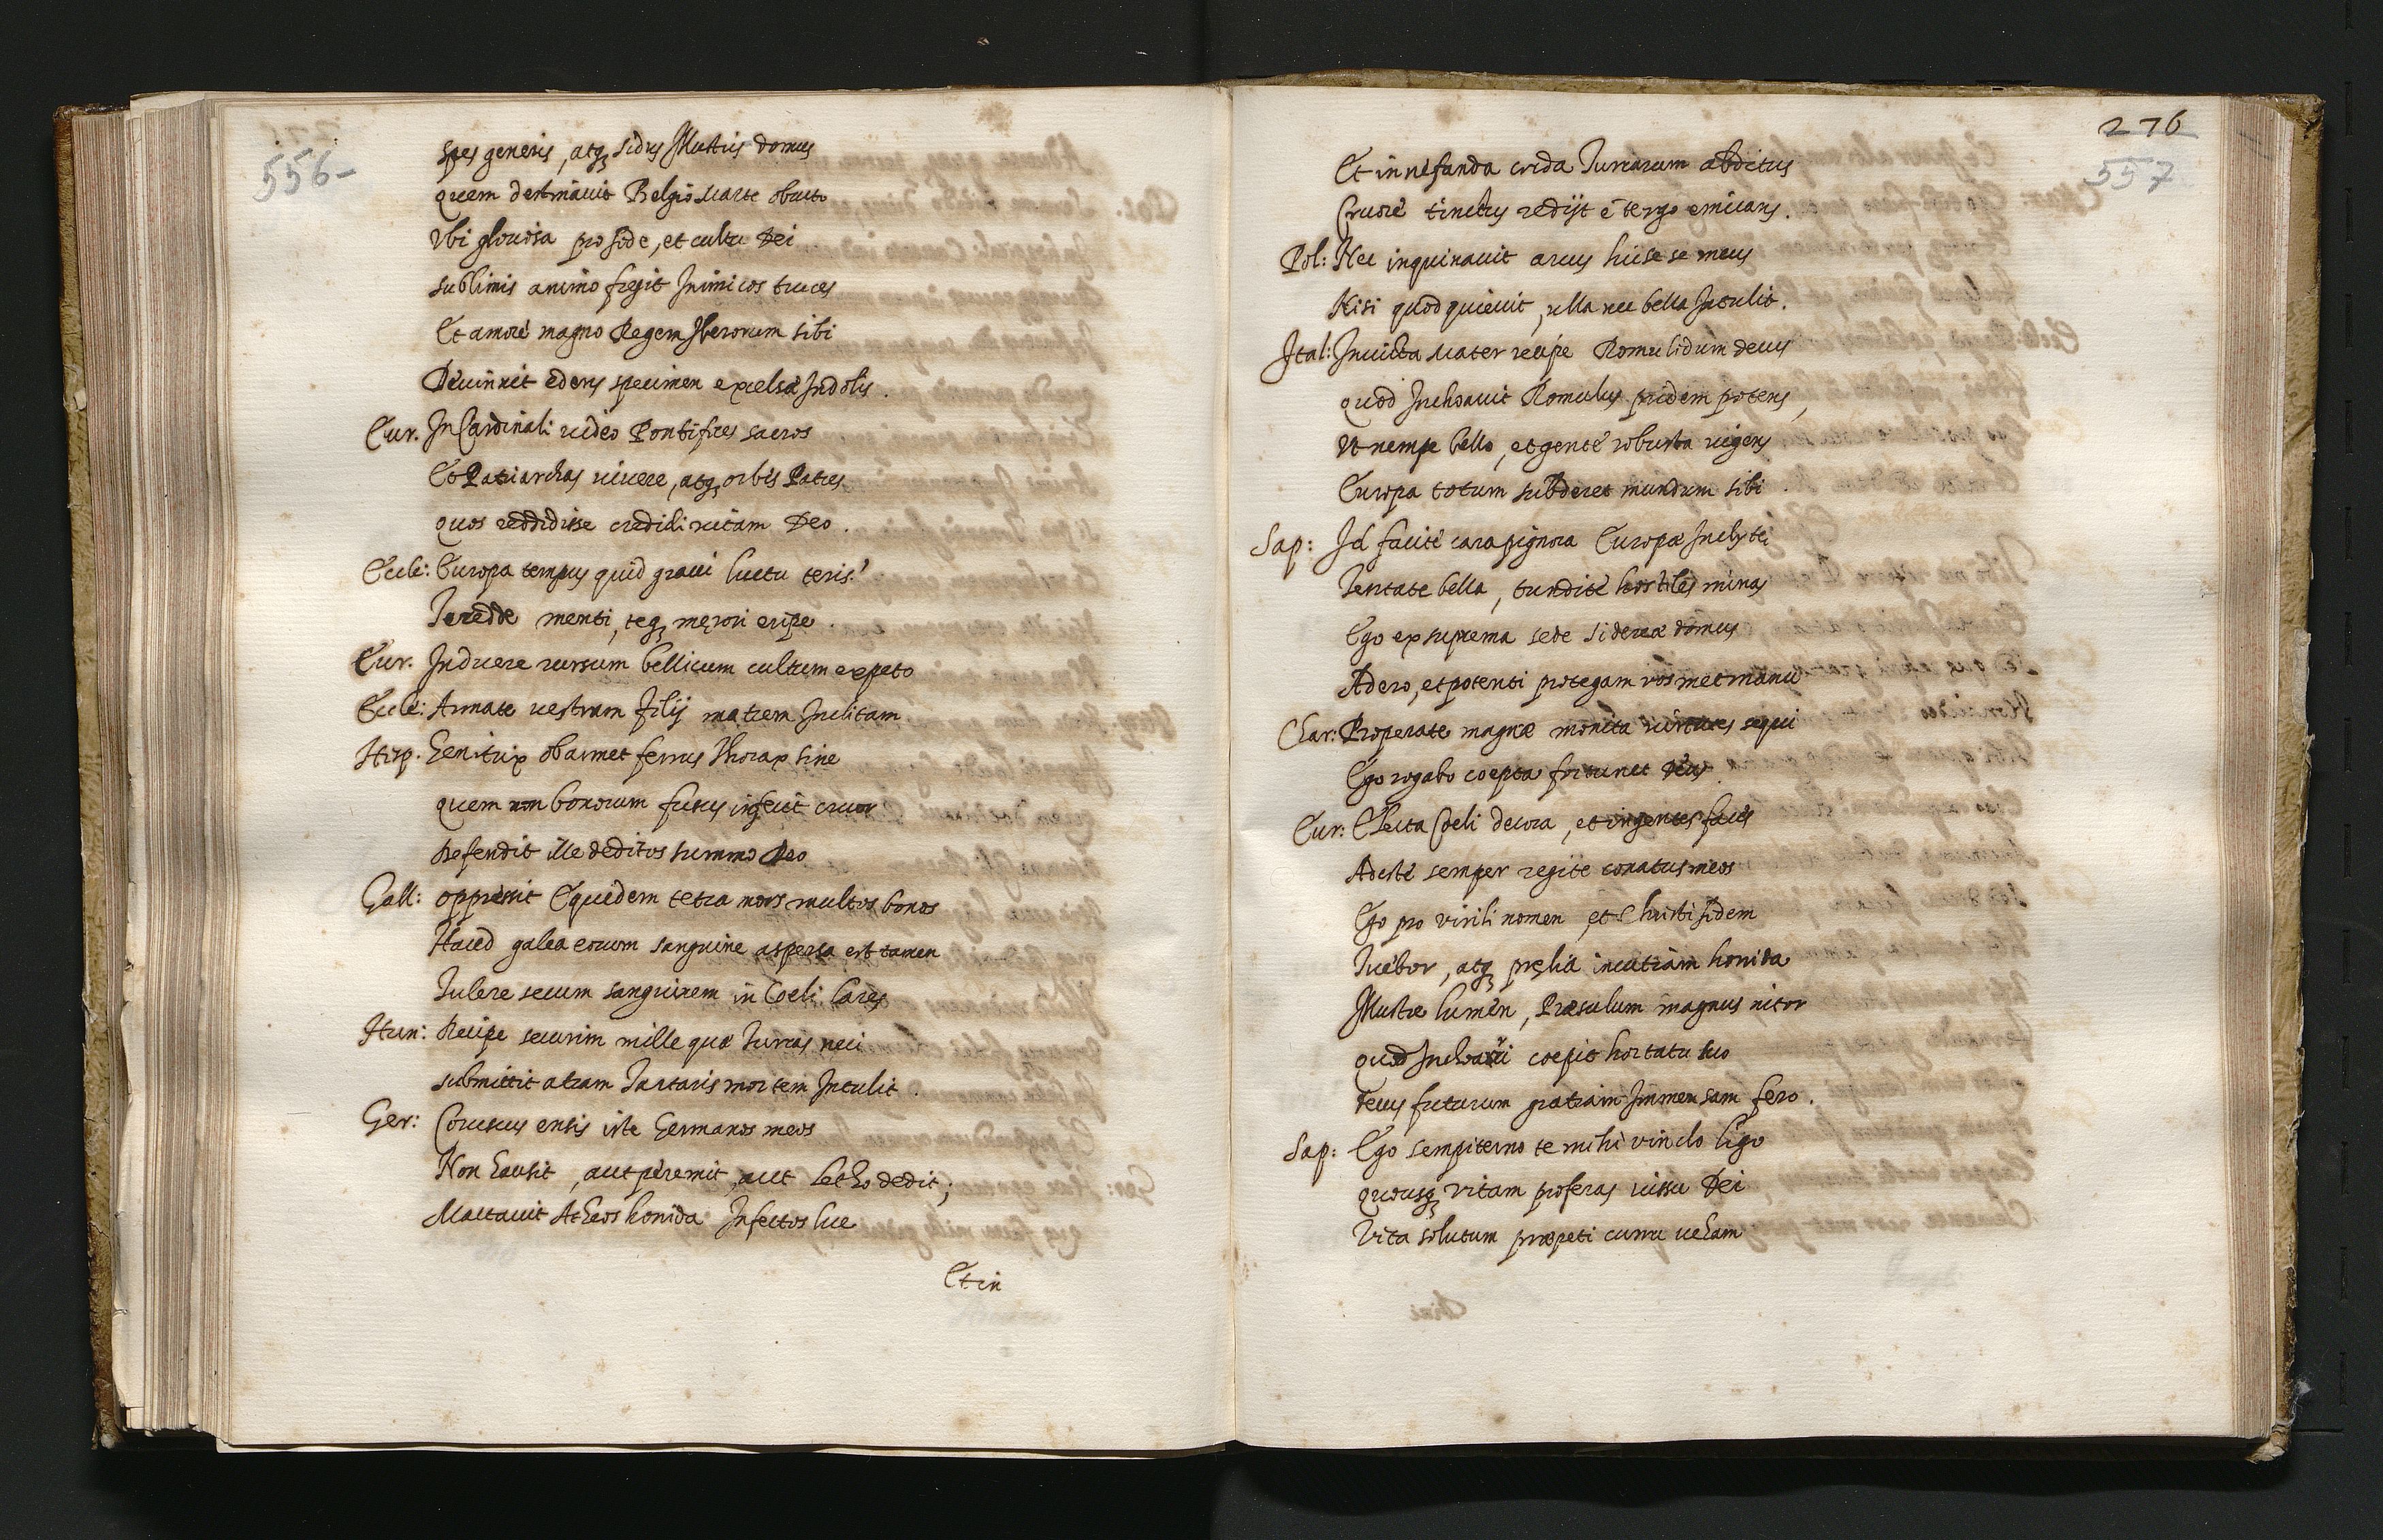 556-
spes generis, atq; sidus Illustris domus
quem destinauit Belgio Marte obruto
Vbi gloriosa pro fide, et cultu Dei
sublimis animo fregit Inimicos truces
Et amore magno Regem Iberorum sibi
Deuinxit edens specimen excelsæ Indolis.
Eur. In Cardinali uideo Pontifices sacros
Et Patriarchas uiuere, atq; orbis Patres
quos reddidisse credidi uitam Deo.
Eccle: Europa tempus quid graui luctu teris?
Te redde menti, teq; męrori eripe.
Eur. Induere rursum bellicum cultum expeto
Eccle: Armate uestram filij matrem Inclitam
Hisp. Genitrix obarmet ferreus thorax sinu
quem non bonorum fusus infecit cruor
Defendit ille deditos summo Deo
Gall: oppressit Equidem tetra mors multos bonos
Haud galea eorum sanguine aspersa est tamen
Tulere secum sanguinem in Coeli lares
Hun: Recipe securim mille quæ Turcas neci
submittit atram Tartaris mortem Intulit.
Ger: Coruscus ensis iste Germanos meos
Non hausit, aut peremit, aut letho dedit;
Mactauit Atheos horrida Infectos lue
Et in
276
557
Et in nefanda corda Turcarum abditus
Cruore tinctus redijt è tergo emicans.
Pol: Nec inquinauit arcus hic se meus
Nisi quod quieuit, ulla nec bella Intulit.
Ital: Inuicta Mater recipe Romulidum decus
quod Inchoauit Romulus pridem potens,
Vt nempe bello, et gente robusta uigens
Europa totum subderet mundum sibi.
Sap: Id facite cara pignora Europæ Inclytæ
Tentate bella, tundite hostiles minas
Ego ex suprema sede sidereæ domus
Adero, et potenti protegam vosmet manu
Char: Properate magnæ monita uirtutis sequi
Ego rogabo coepta fortunet Deus.
Eur: Electa Coeli decora, et ingentes faces
Adeste semper regite conatus meos
Ego pro virili nomen, et Christi fidem
Tuebor, atq; pręlia incutiam horrida
Illustre lumen, Præsulum magnus nitor
quod Inchoaui coepit hortatu tuo
Decus futurum gratiam Immensam fero.
Sap: Ego sempiterno te mihi vinclo ligo
quousq; vitam proferas iussu Dei
Vita solutum præpeti curru ueham